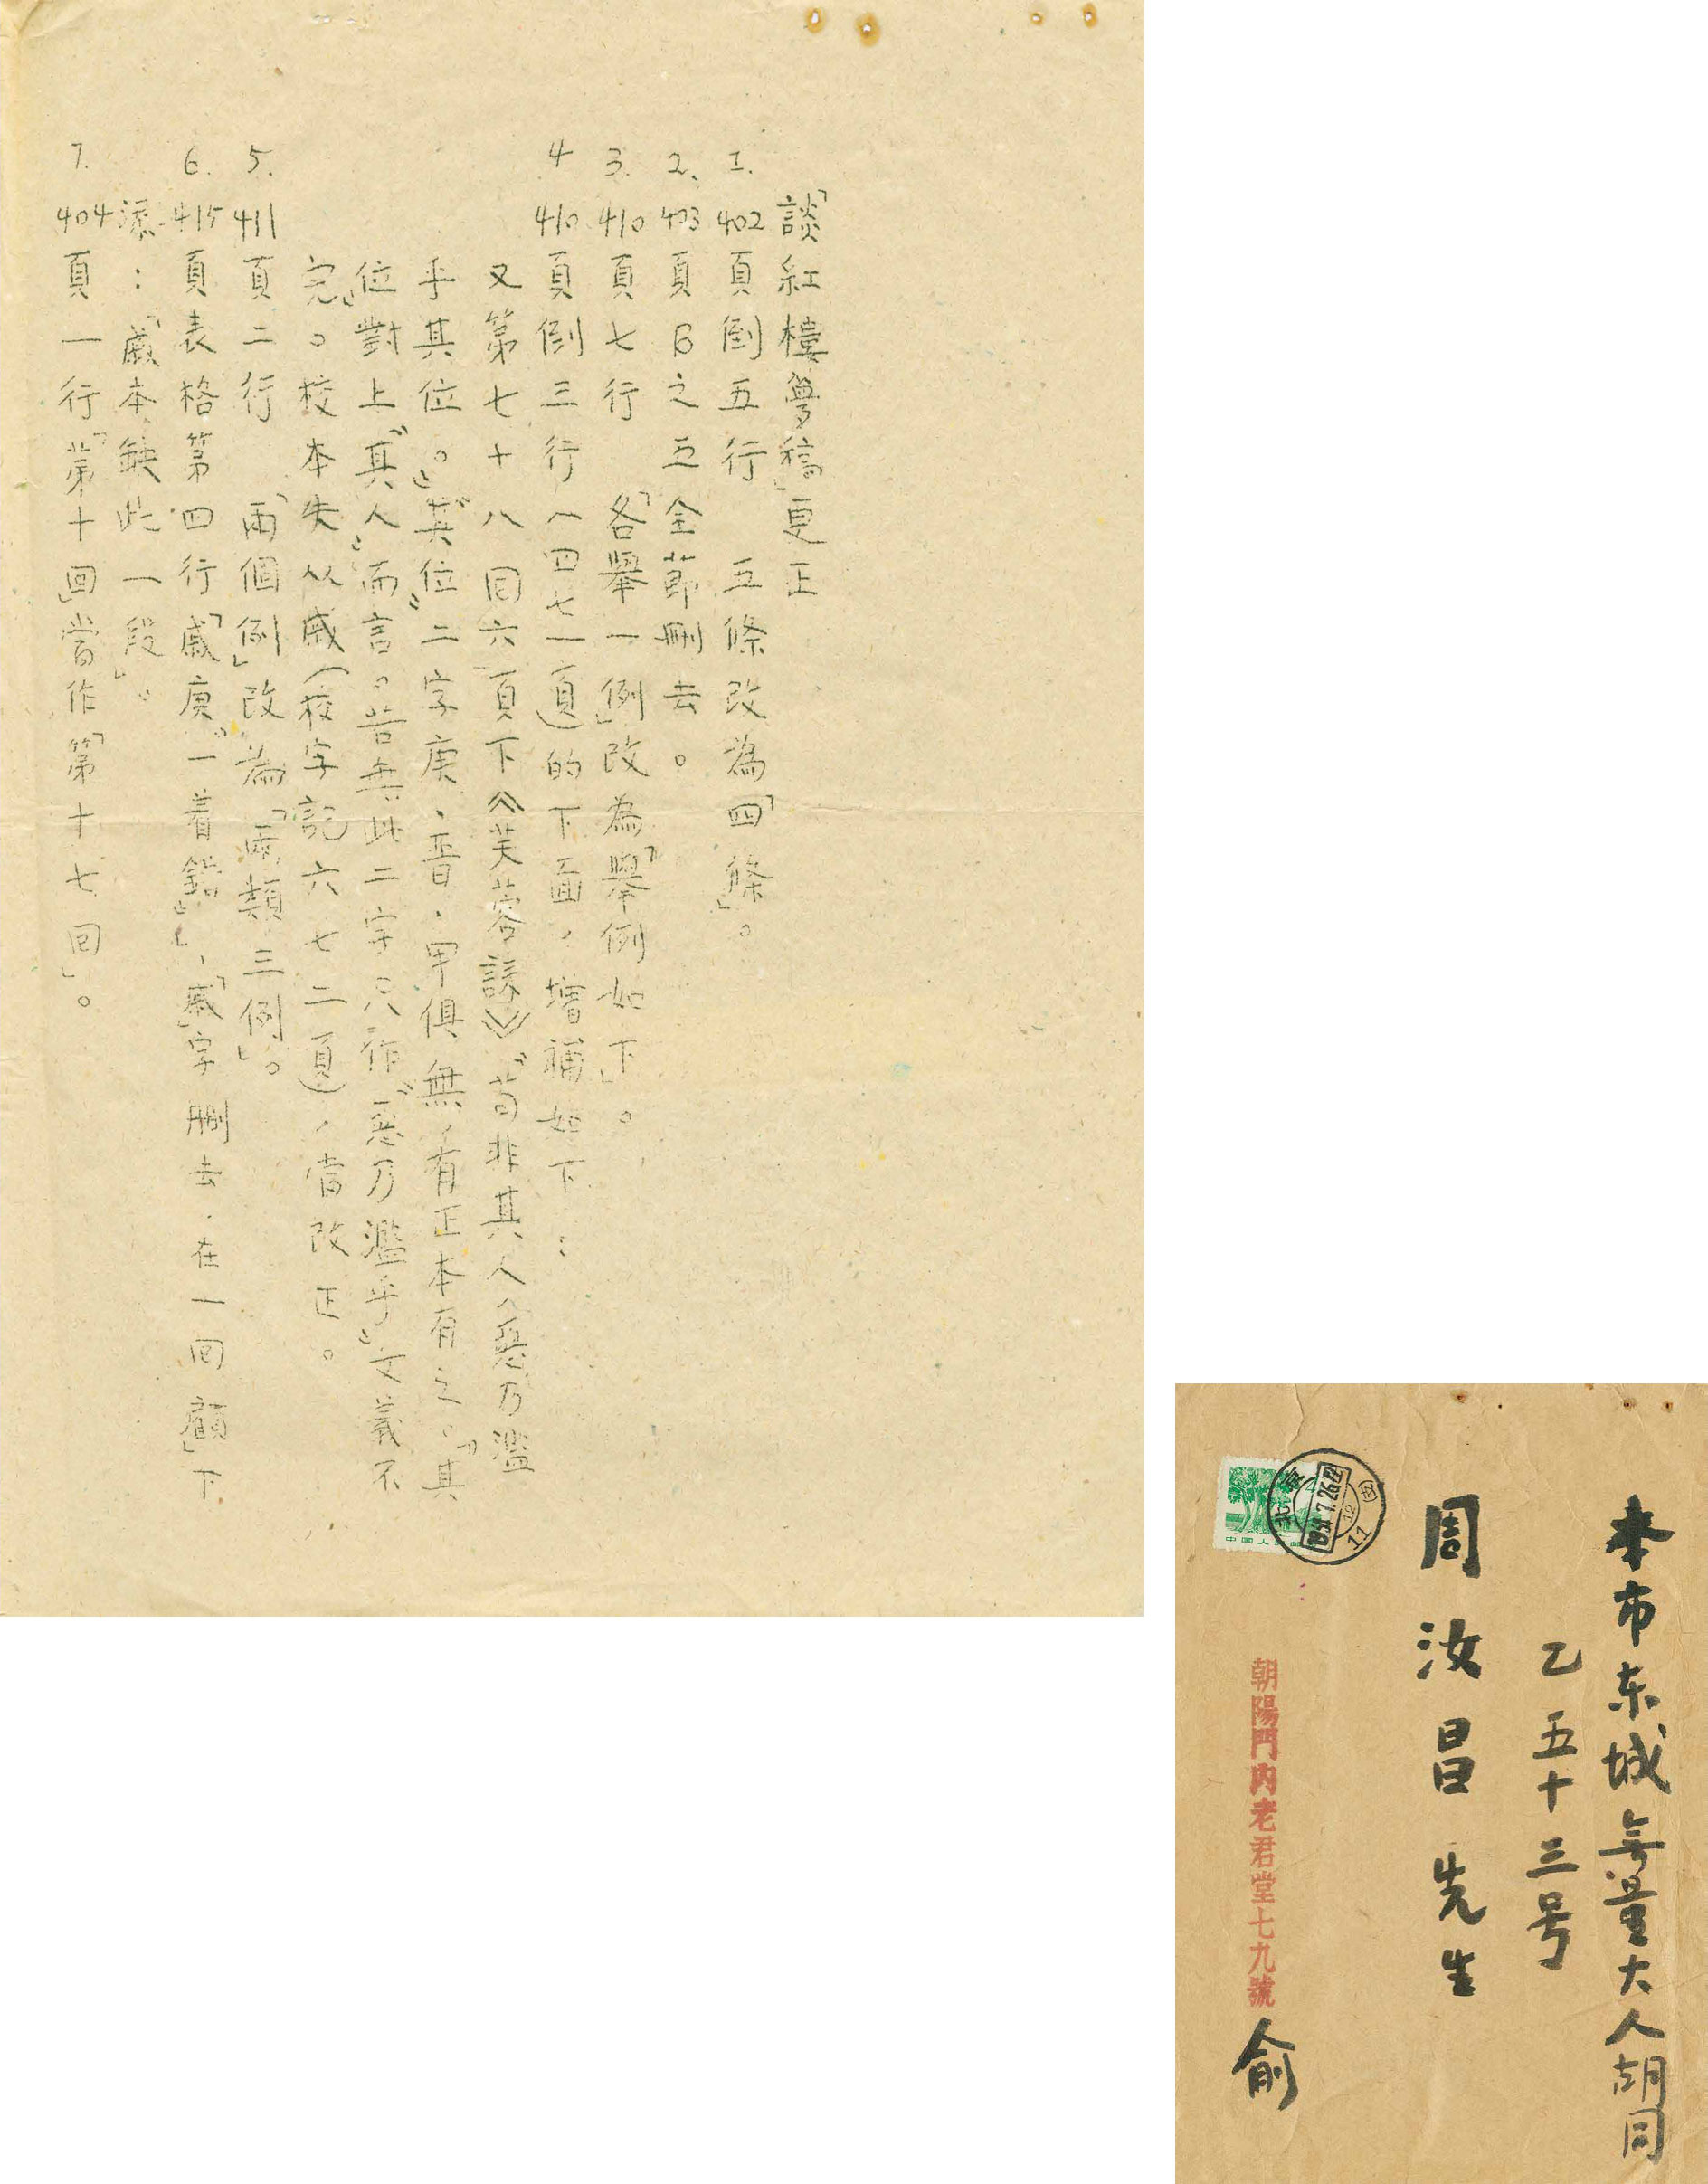 「談紅樓夢稿」更正
1. 402頁倒五行　五條改為「四條」。
2. 403頁B之五全節刪去。
3. 410頁七行　「各舉一例」改為「舉例如下」。
4 410頁倒三行(四七一頁)的下面，增補如下：
又第七十八回六頁下《芙蓉誄》『苟非其人，惡乃濫
乎其位。』『其位』二字庚．晋．甲俱無，有正本有之。『其
位』對上『其人』而言。若無此二字只作『惡乃濫乎』文義不
完。校本失从戚(校字記六七二頁)，當改正。
5. 411頁二行　「兩個例」改為「兩類，三例」。
6. 415頁表格第四行「戚庚『一着錯』」、「戚」字刪去．在「一回顧」下
添：「戚本缺此一段」。
7. 404頁一行「第十回」當作「第十七回」。
本市东城無量大人胡同
乙五十三号
周汝昌先生
朝陽門內老君堂七九號
俞
中国人民邮
北京
7.26.12
11